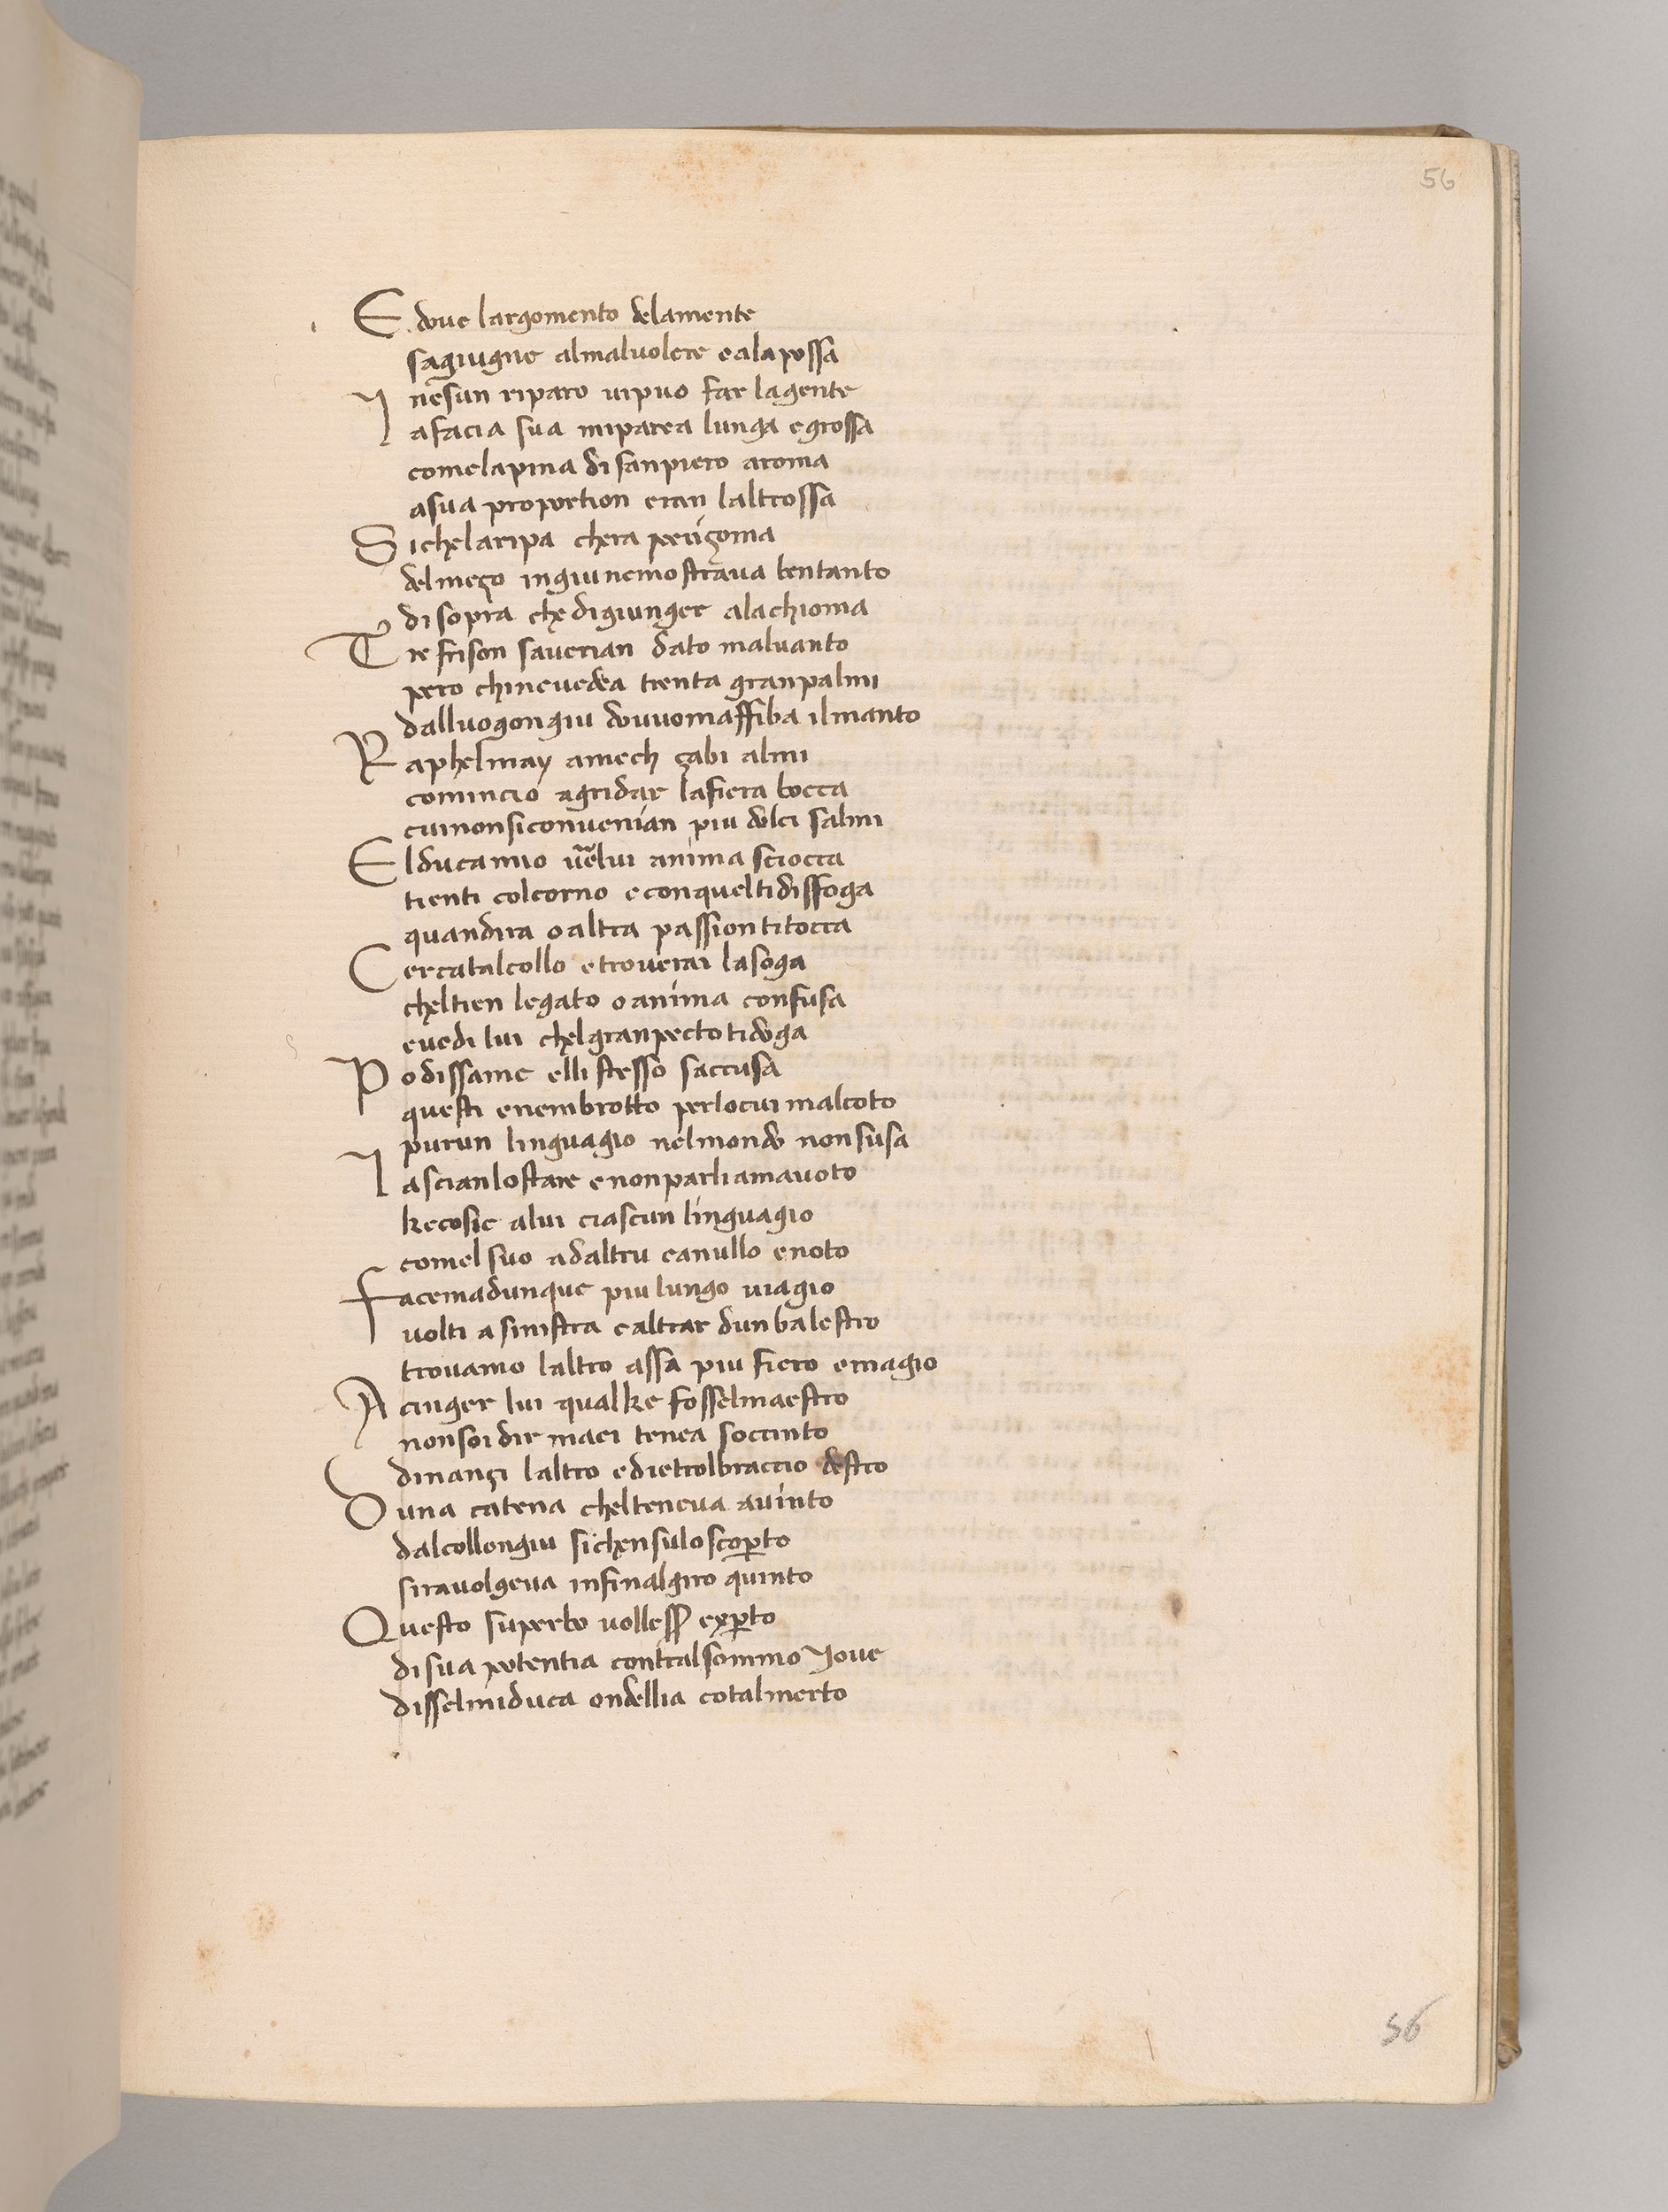 56
E doue largomento delamente
sagiugne almaluolere ealapossa
nesun riparo uipuo far lagente
I afacia sua miparea lunga egrossa
comelapina di sanpiero aroma
asua proportion eran laltrossa
S ichelaripa chera perizoma
delmezo ingiunemostraua bentanto
disopra che digiunger alachioma
T re frison sauerian dato maluanto
pero chineuedea trenta granpalmi
dalluogongiu douuomaffiba ilmanto
R aphelmay amech zabi almi
comincio agridar lafiera bocca
cuinonsiconuenian piu dolci salmi
E lducamio u̅elui anima sciocca
tienti colcorno econqueltidissfoga
quandira oaltra passiontitocca
C ercatalcollo etrouerai lasoga
cheltien legato oanima confusa
euedi lui chelgranpectotidoga
P odissame elli stesso saccusa
questi enembrotto perlocui malcoto
purun linguagio nelmondo nonsusa
l ascianlostare enonparliamauoto
kecosie alui ciascun linguagio
comel suo adaltru canullo enoto
f acemadunque piu lungo uiagio
uolti asinistra ealtrar dunbalestro
trouamo laltro assa piu fiero emagio
A cinger lui qualke fosselmaestro
nonsoi dir maei tenea soccinto
dinanzi laltro edietrolbraccio destro
D una catena chelteneua auinto
dalcollongiu sichensulo scop̲to
sirauolgeua infinalgiro quinto
Q uesto superbo uolless̲ exp̲to
disua potentia contralsommo Joue
disselmiduca ondellia cotalmerto
56